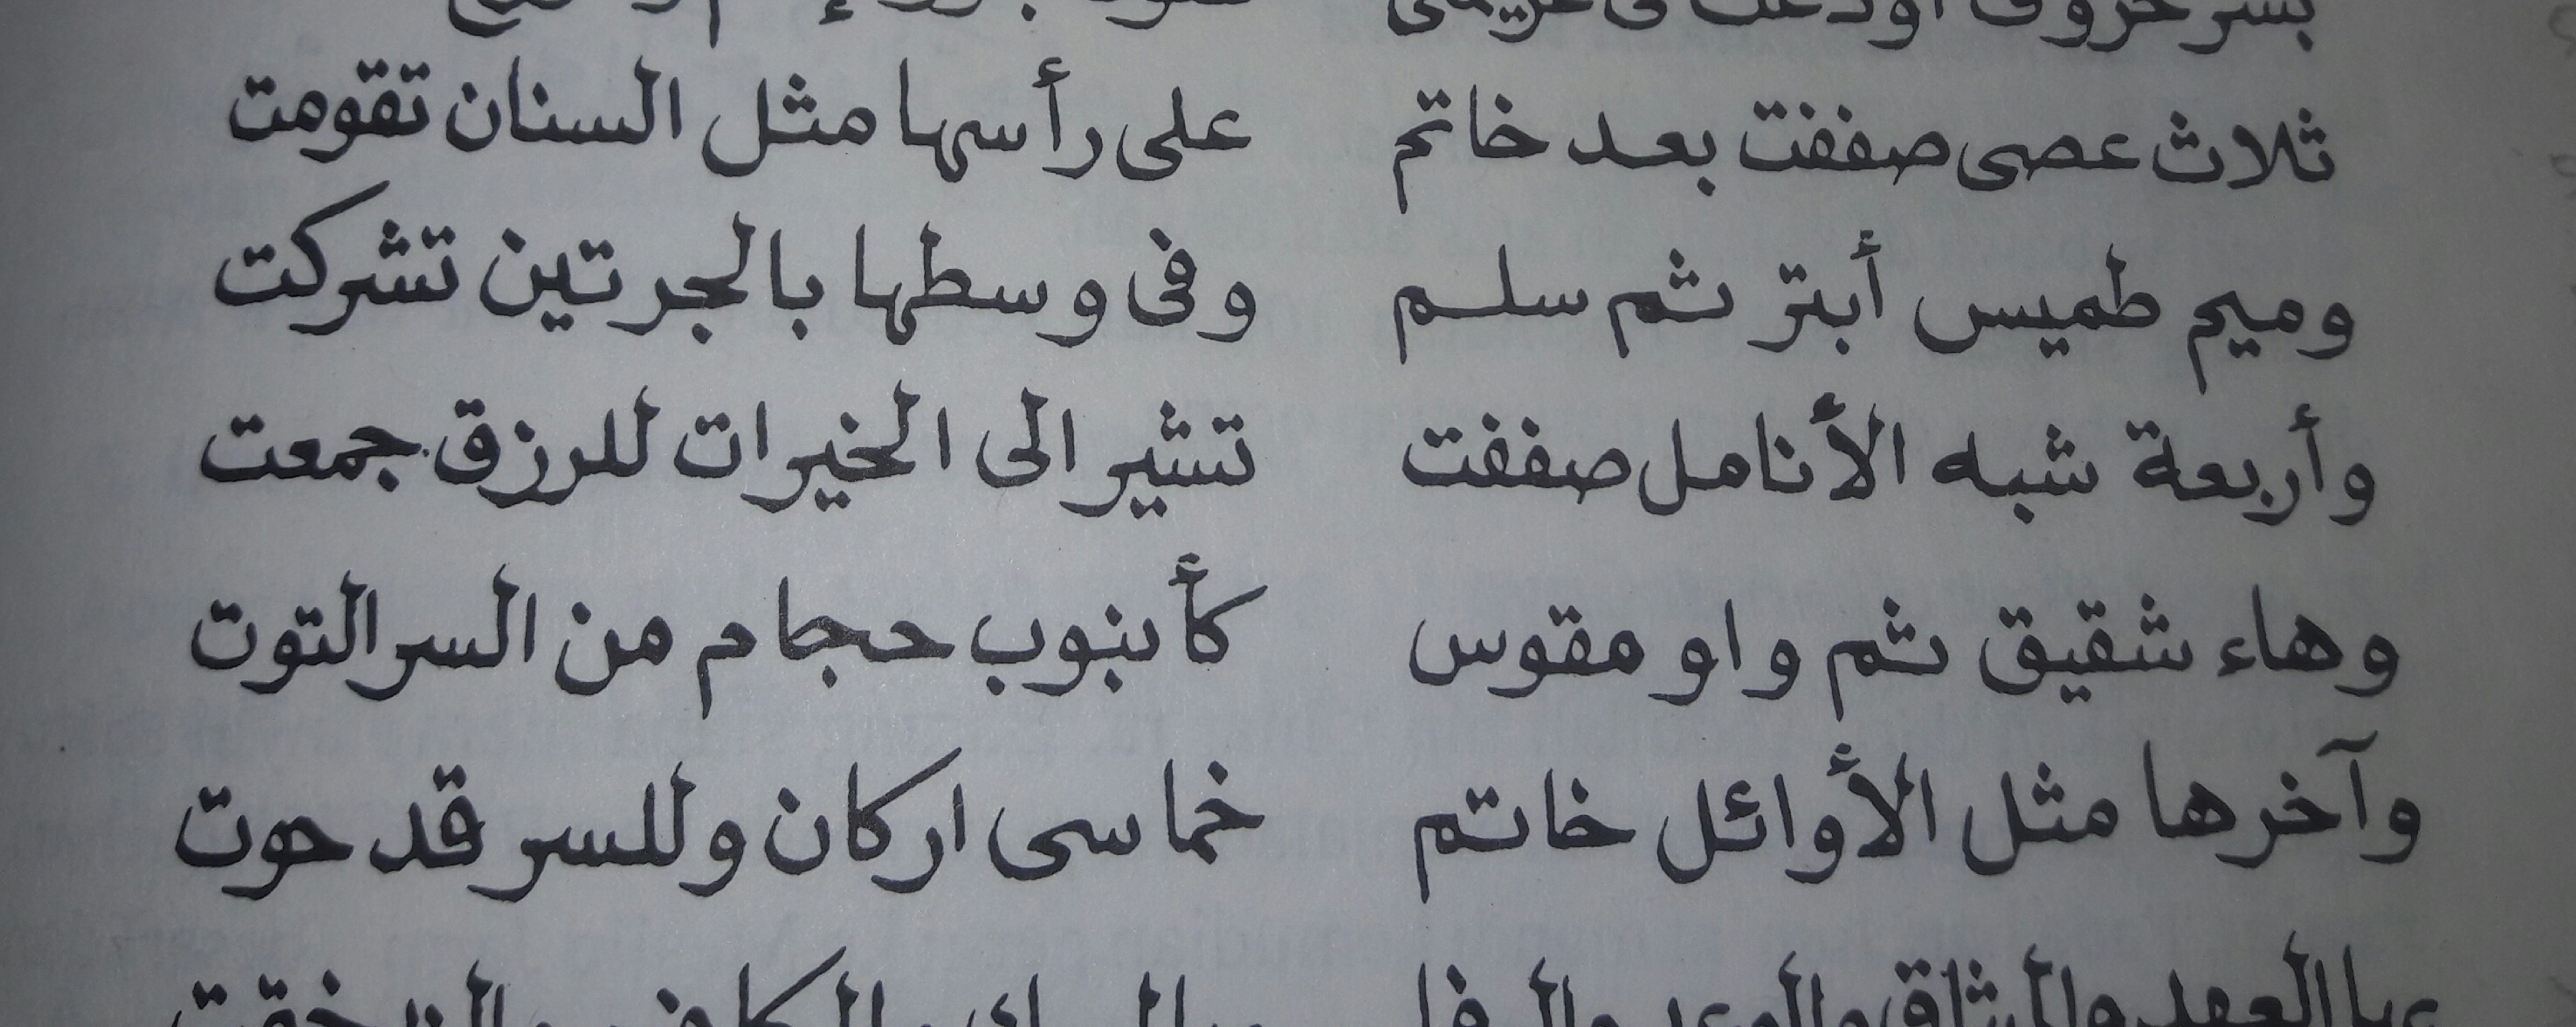 بسر حروف أودعت فى عزيمتى
ثلاث عصى صففت بعد خاتم على رأسها مثل السنان تقومت
وميم طميس أبتر ثم سلم وفى وسطها بالجرتين تشركت
وأربعة شبه الأنامل صففت تشير الى الخيرات للرزق جمعت
وهاء شقيق ثم واو مقوس كأنبوب حجام من السر التوت
وآخرها مثل الأوائل خاتم خماسى اركان وللسر قد حوت